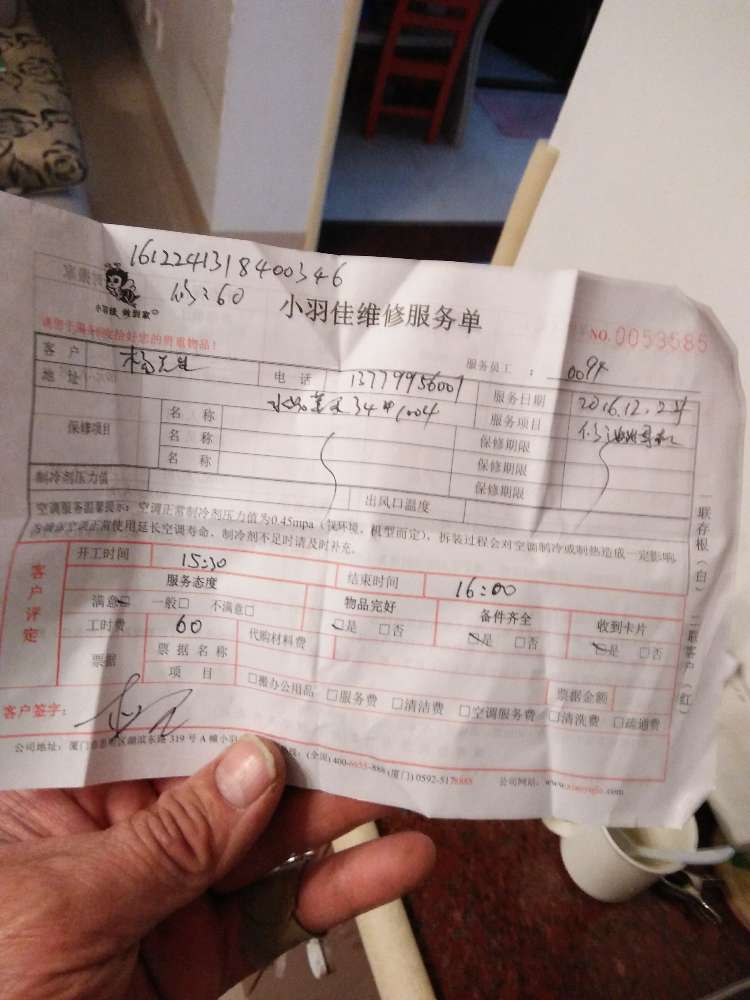 1612241318400346
修:60
小羽佳 做到家
小羽佳维修服务单
NO.0053585
服务员工 :
客 户 杨先生 电 话 13779956001 服务日期 2016.12.24
地 址 34 1004 服务项目 修油烟机
保修项目 名 称 保修期限
名 称 保修期限
名 称 保修期限
制冷剂压力值 出风口温度
空调服务温馨提示:空调正常制冷剂压力值为0.45mpa(视环境、机型而定),拆装过程会对空调制冷或制热造成一定影响,
为确保空调正常使用延长空调寿命,制冷剂不足时请及时补充。
一联存根(白) 二联客户(红)
客户评定
开工时间 15:30 结束时间 16:00
服务态度 物品完好 备件齐全 收到卡片
满意☑ 一般□ 不满意□ ☑是 □否 ☑是 □否 ☑是 □否
工时费 60 代购材料费
票据 票据名称 票据金额
项 目 □搬办公用品 □服务费 □清洁费 □空调服务费 □清洗费 □疏通费
客户签字:
公司地址:厦门市思明区湖滨东路 319 号 A 幢小羽 (全国) 400-6655-888 (厦门) 0592-5178888 公司网站:www.xiaoyujia.com